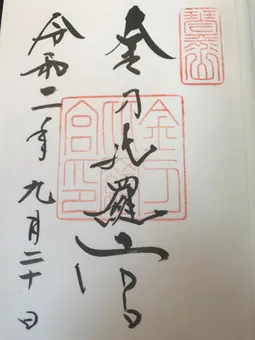 金刀比羅宮
金刀比羅宮印
令和二年九月二十日